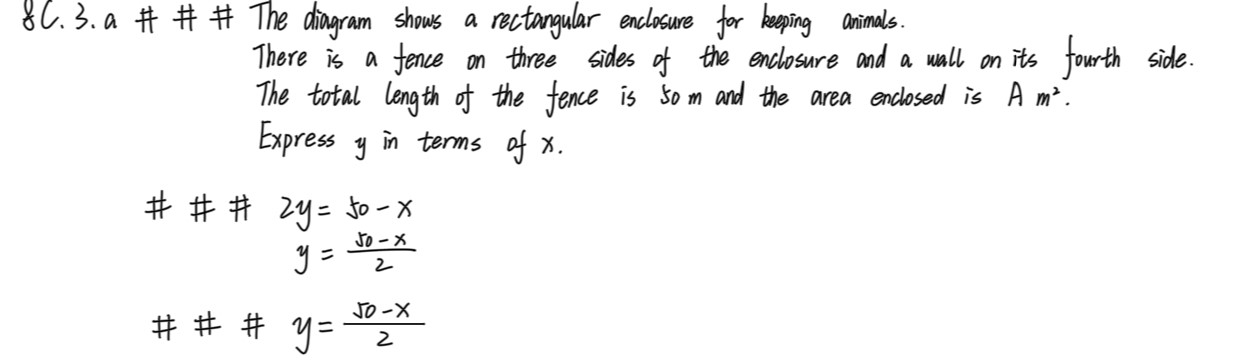 8C.3.a # # # The diagram shows a rectangular enclosure for keeping animals.
There is a fence on three sides of the enclosure and a wall on its fourth side.
The total length of the fence is 50 m and the area enclosed is A m².
Express y in terms of x.
# # # 2y = 50 - x
y = \frac{50 - x}{2}
# # # y = \frac{50 - x}{2}